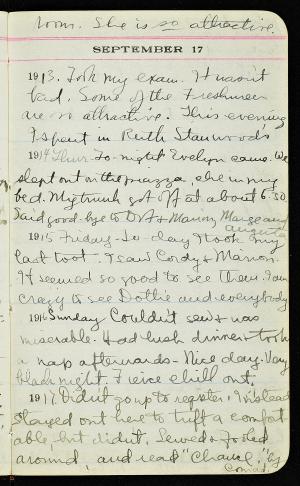 room. She is so attractive.
SEPTEMBER 17
1913. Took my exam. It wasn't
bad. Some of the Freshmen
are so attractive. This evening
I spent in Ruth Stanwood's
1914 Thur. To-night Evelyn came. We
slept out on the piazza, she in my
bed. My trunk got off at about 6.30.
Said good-bye to Dot & Marion, Marge and
Augusta
1915 Friday - To-day I took my
last toot. I saw Cordy & Marion.
It seemed so good to see them. I am
crazy to see Dottie and everybody
1916 Sunday Couldn't sew & was
miserable. Had lush dinner & took
a nap afterwards - Nice day. Very
black night. Fierce chill out.
1917 Didn't go up to register. Instead
stayed out here to tuff a comfort
able, but didn't. Sewed & fooled
around, and read "Chance" by
Conrad.